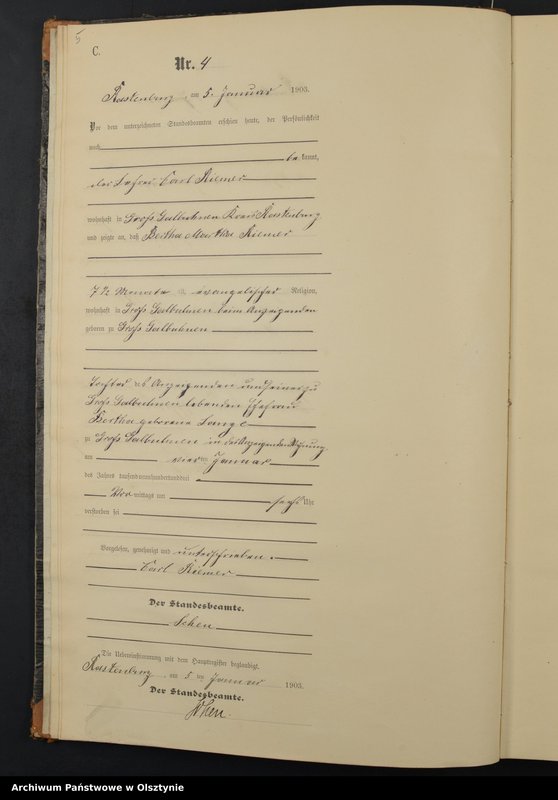 5
C.
Nr. 4
Rastenburg, am 5. Januar 1903.
Vor dem unterzeichneten Standesbeamten erschien heute, der Persönlichkeit
nach
be kannt,
der Carl Riemer
wohnhaft in Groß Galbuhnen Kreis Rastenburg
und zeigte an, daß Bertha Martha Riemer
7 1/2 Monate alt, evangelischer Religion,
wohnhaft in Groß Galbuhnen beim Anzeigenden
geboren zu Groß Galbuhnen
Tochter des Anzeigenden und seiner zu
Groß Galbuhnen lebenden Ehefrau
Bertha geborene Lange
zu Groß Galbuhnen in des Anzeigenden Wohnung
am vier ten Januar
des Jahres tausendneunhundertunddrei
Vor mittags um sechs Uhr
verstorben sei
Vorgelesen, genehmigt und unterschrieben.
Carl Riemer
Der Standesbeamte.
Die Uebereinstimmung mit dem Hauptregister beglaubigt.
Rastenburg am 5 ten Januar 1903.
Der Standesbeamte.
Archiwum Państwowe w Olsztynie